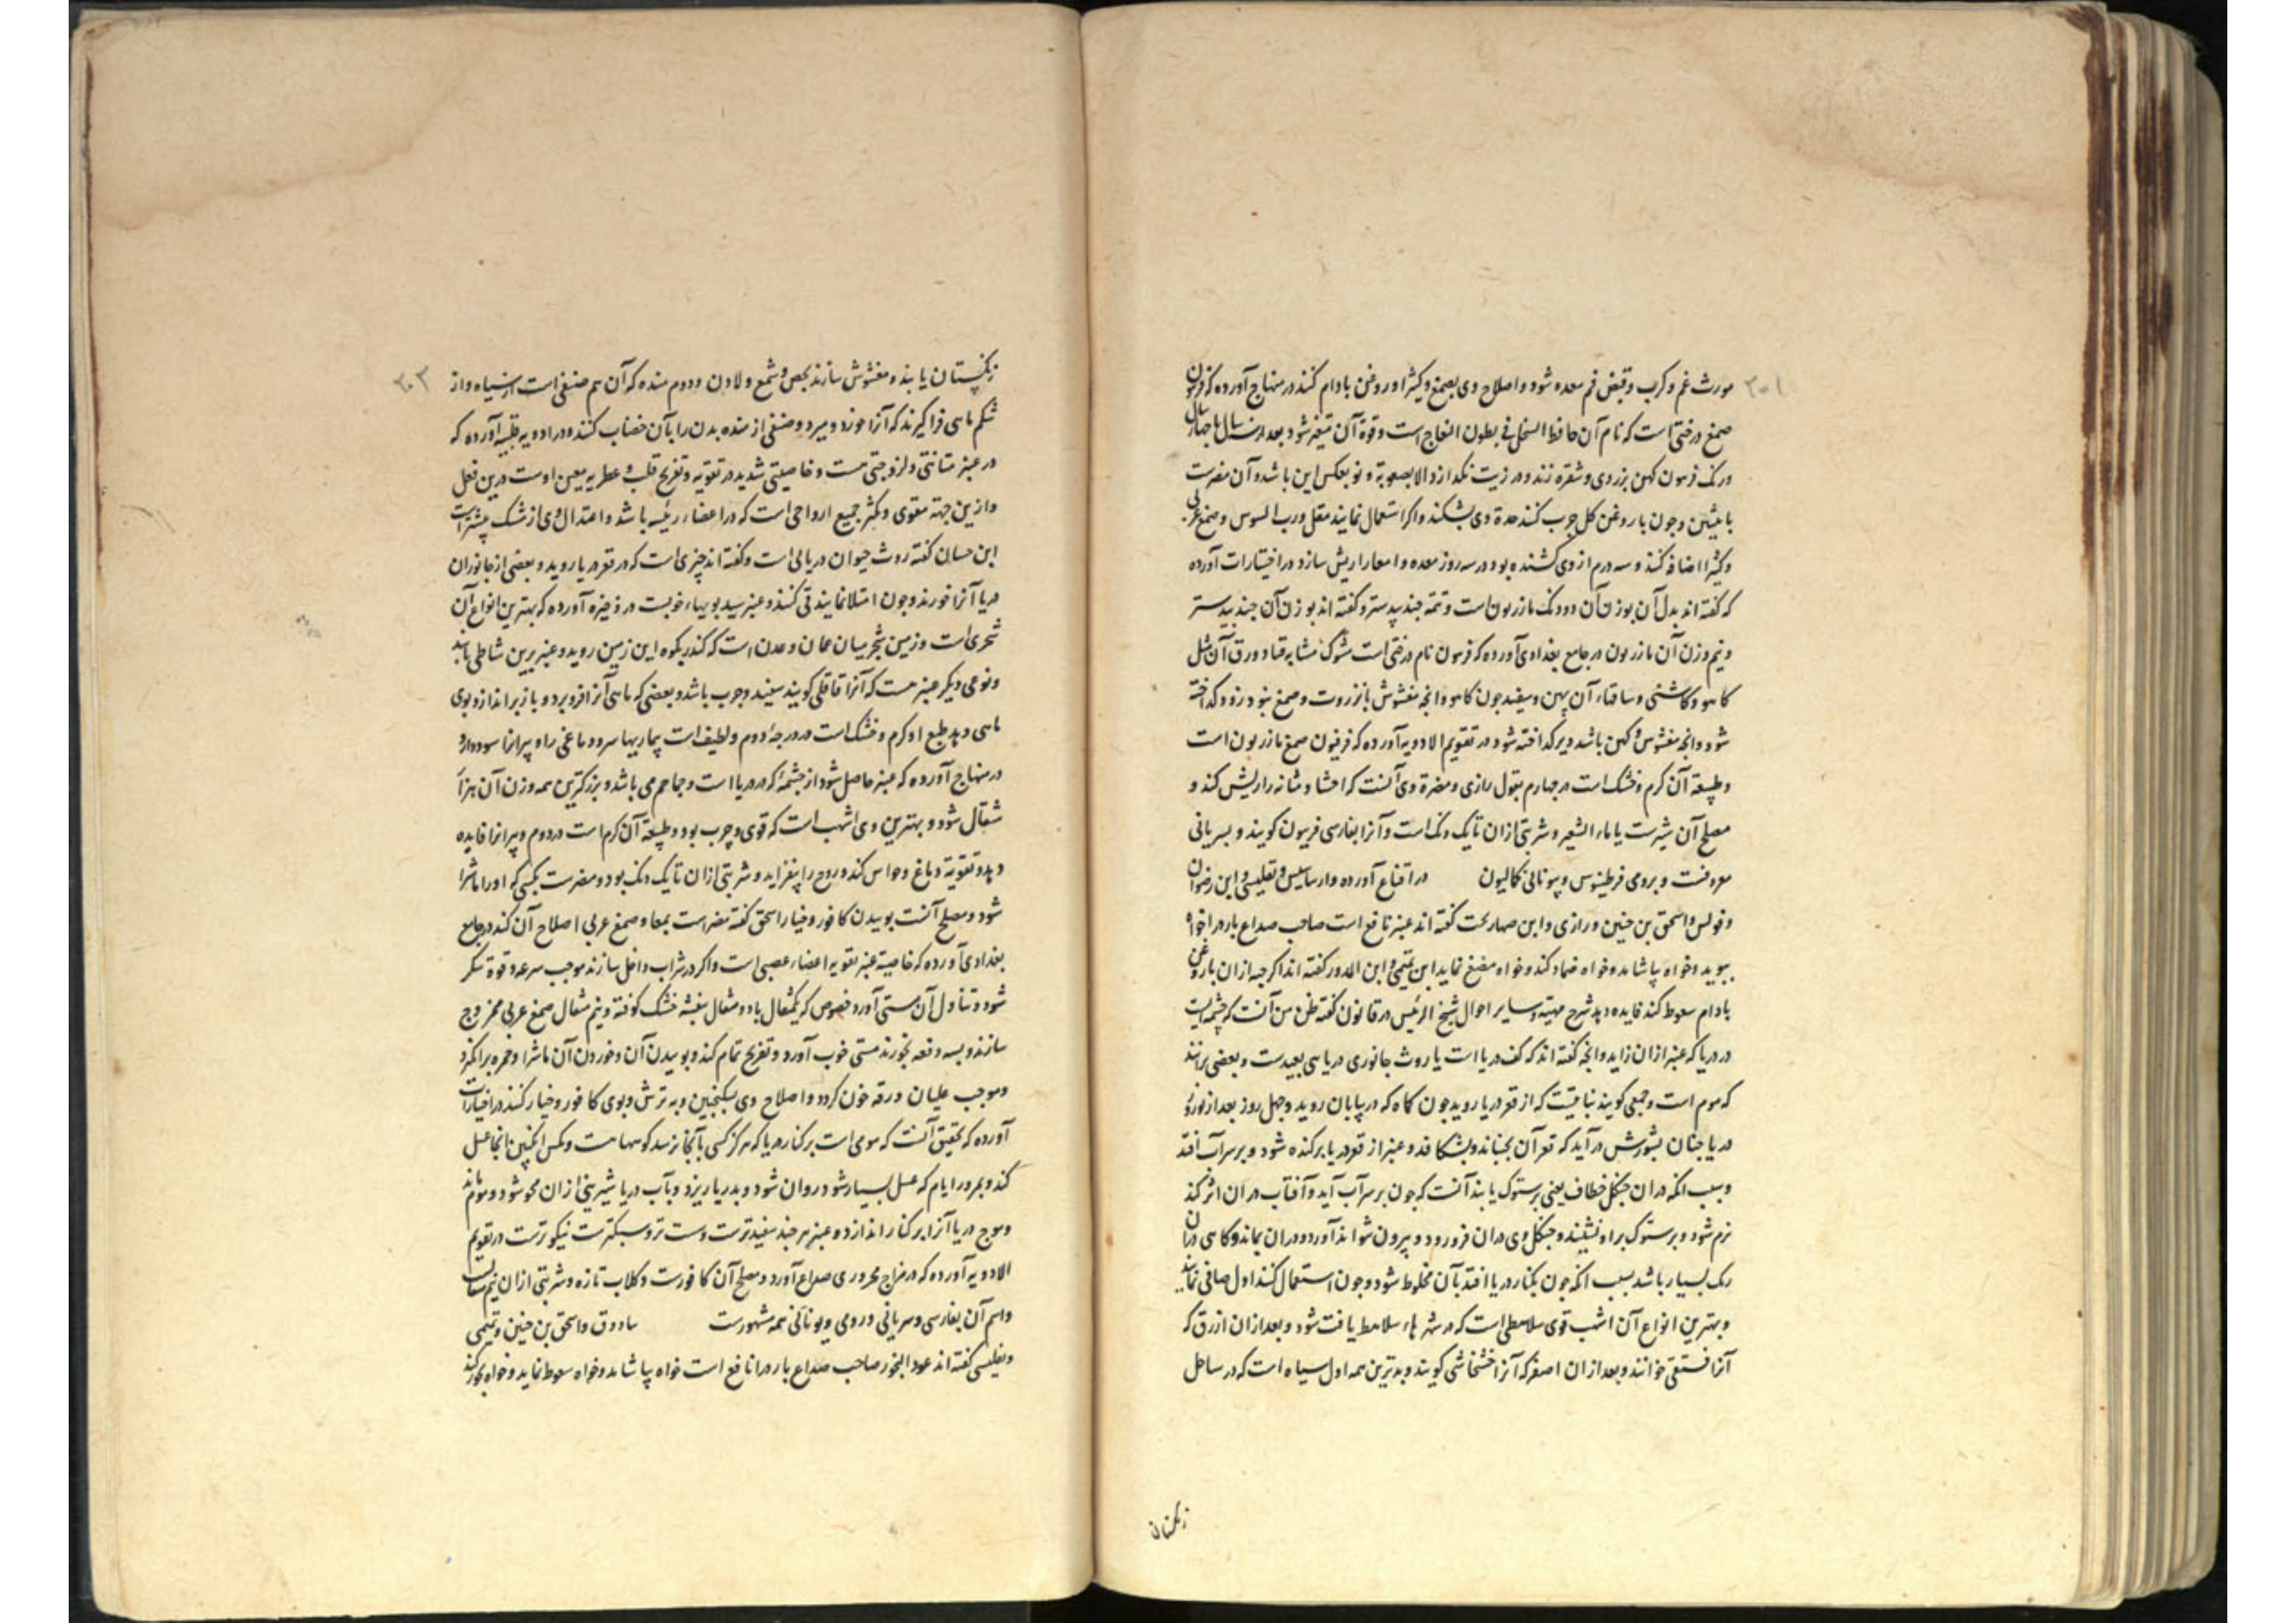 مورث غم و کرب و قبض فم معده شود و اصلاح وی بصمغ و کثیرا و روغن بادام کنند در منهاج آورده که فرفیون
صمغ درختی است که نام آن حافظ النحل فی بطون النعاج است و قوة آن متغیر شود بعد از سال تا چهار سال
و رنک فرسون کهن بزردی و شقره زند و در زیت نکدازد الا بصعوبة و نو بعکس این باشد و آن مضرت
بانثیین و چون با روغن کل چرب کنند حدة وی بشکند و اکر استعمال نمایند مقل و رب السوس و صمغ عربی
و کثیرا اضافه کنند و سه درم از وی کشنده بود در سه روز معده و امعا را ریش سازد در اختیارات آورده
که کفته اند بدل آن بوزن آن دودنک مازریون است و تتمه جند بیدستر و کفته اند بوزن آن جند بیدستر
و نیم وزن آن مازریون در جامع بغدادی آورده که فرسون نام درختی است مشوک مشابه قتاد ورق آن مثل
کاهو و کاشنی و ساقهاء آن پهن و سفید چون کاهو و انچه مغشوش بانزروت و صمغ بنو د زود کداخته
شود و انچه مغشوش و کهن باشد دیر کداخته شود در تقویم الادویه آورده که فرفیون صمغ مازریون است
و طبیعة آن کرم و خشک است در چهارم بقول رازی و مضرة وی آنست که احشا و مثانه را ریش کند و
مصلح آن شیرست یا ماء الشعیر و شربتی از ان تا یک دنک است و آنرا بفارسی فرسون کویند و بسریانی
معروفست و برومی فرطینوس و بیونانی کالیون در اقناع آورده و ارسایس و تفلیسی و ابن رضوان
و فولس و اسحق بن حنین و رازی و ابن صهاربخت کفته اند عنبر نافع است صاحب صداع بارد را خواه
ببوید و خواه بیاشامد و خواه ضماد کند و خواه مضغ نماید ابن تمیمی و ابن الدور کفته اند اکر حبه از ان با روغن
بادام سعوط کند فایده دهد شرح مهیته و سایر احوال شیخ الرئیس در قانون کفته ظن من آنست که چشمه ایست
در دریا که عنبر از ان زاید و انچه کفته اند که کف دریا است یا روث جانوری دریاسی بعیدست و بعضی برانند
که موم است و جمعی کویند نباتیست که از قعر دریا روید چون کاه که در بیابان روید و چهل روز بعد از نوروز
دریا چنان بشورش در آید که قعر آن بجنباند و بشکافد و عنبر از قعر دریا برکنده شود و بر سر آب افتد
و سبب انکه در ان چنکل خطاف یعنی پرستوک یابند آنست که چون بر سر آب آید و آفتاب در ان اثر کند
نرم شود و پرستوک بر او نشیند و چنکل وی در ان فرو رود و بیرون نتواند آورد و در ان بماند و کاسی در ان
ریک بسیار باشد سبب انکه چون بکنار دریا افتد بآن مخلوط شود و چون استعمال کنند اول صافی نمایند
و بهترین انواع آن اشهب قوی سلاهطی است که در شهرهاء سلاهط یافت شود و بعد از ان ازرق که
آنرا فستقی خوانند و بعد از ان اصفر که آنرا خشخاشی کویند و بدترین همه اول سیاه است که در ساحل
زنکستان
زنکستان یابند و مغشوش سازند بجص و شمع و لادن و دوم منده که آن هم صنفی است از سیاه و از
شکم ماهی فرا کیرند که آنرا خورد و بمیرد و صنفی از منده بدن را بآن خضاب کنند و در ادویه قلبیه آورده که
در عنبر متانتی و لزوجتی هست و خاصیتی شدید در تقویة و تفریح قلب و عطریه معین اوست درین فعل
و ازین جهة مقوی و مکثر جمیع ارواحی است که در اعضاء رئیسه باشد و اعتدال وی از مشک بیشتر است
ابن حسان کفته روث حیوان دریایی است و کفته اند چیزی است که در قعر دریا روید و بعضی از جانوران
دریا آنرا خورند و چون امتلا نمایند قی کنند و عنبر سید بویهاء خوبست در ذخیره آورده که بهترین انواع آن
شحری است و زمین شحر میان عمان و عدن است که کندر بکوه این زمین روید و عنبر برین شاطی باشد
و نوعی دیکر عنبر هست که آنرا قاقلی کویند سفید و چرب باشد و بعضی که ماهی آنرا فرو برد و باز براندازد بوی
ماهی دهد طبع او کرم و خشک است در درجه دوم و لطیف است بیماریها سرد دماغی را و پیرانرا سود دارد
در منهاج آورده که عنبر حاصل شود از چشمه که در دریا است و جماجم می باشد و بزرکترین همه وزن آن هزار
مثقال شود و بهترین وی اشهب است که قوی و چرب بود و طبیعة آن کرم است در دوم و پیرانرا فایده
دهد و تقویة دماغ و حواس کند و روح را بیفزاید و شربتی از ان تا یک دنک بود و مضرست بکسی که او را ماشرا
شود و مصلح آنست بوییدن کافور و خیار اسحق کفته مضر است بمعا و صمغ عربی اصلاح آن کند در جامع
بغدادی آورده که خاصیة عنبر تقویه اعضاء عصبی است و اکر در شراب داخل سازند موجب سرعه و قوة سکر
شود و تناول آن مستی آورد خصوص که یکمثقال با دو مثقال بنفشه خشک کوفته و نیم مثقال صمغ عربی ممزوج
سازند و بسه دفعه بخورند مستی خوب آورد و تفریح تمام کند و بوییدن آن و خوردن آن ماشرا و حمره برانکیزد
و موجب غلیان و رقه خون کردد و اصلاح وی بسکنجبین و به ترش و بوی کافور و خیار کنند در اختیارات
آورده که بتحقیق آنست که مومی است بر کنار دریا که هرکز کسی بآنجا نرسد کوهها هست و مکس انکبین انجا عسل
کند و بمرور ایام که عسل بسیار شود روان شود و بدریا ریزد و بآب دریا شیرینی از ان محو شود و موم ماند
و موج دریا آنرا بر کنار اندازد و عنبر هر چند سفیدترست و سست تر و سبکترست نیکوترست در تقویم
الادویه آورده که در مزاج محروری صداع آورد و مصلح آن کافورست و کلاب تازه و شربتی از ان نیم مثقال
و اسم آن بفارسی و سریانی و رومی و یونانی همه مشهورست ساذوق و اسحق بن حنین و تمیمی
و تفلیسی کفته اند عود البخور صاحب صداع بارد را نافع است خواه بیاشامد و خواه سعوط نماید و خواه بخور کند
۳۰۱
۳۰۳